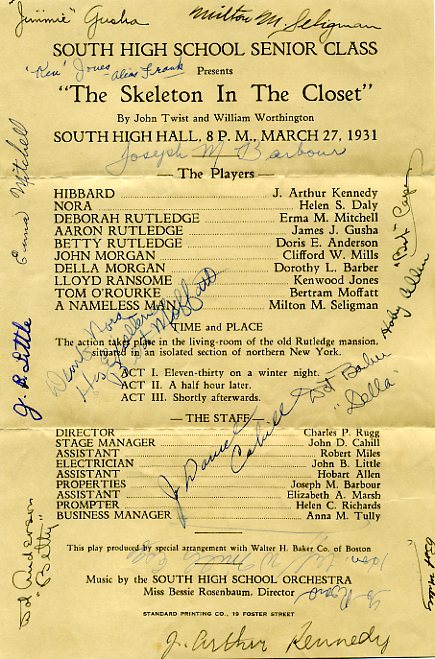 "Jimmie" Gusha
Milton M. Seligman
SOUTH HIGH SCHOOL SENIOR CLASS
"Ken" Jones
alias Frank
Presents
"The Skeleton In The Closet"
By John Twist and William Worthington
SOUTH HIGH HALL, 8 P. M., MARCH 27, 1931
Joseph M Barbour
— The Players —
HIBBARD J. Arthur Kennedy
NORA Helen S. Daly
DEBORAH RUTLEDGE Erma M. Mitchell
AARON RUTLEDGE James J. Gusha
BETTY RUTLEDGE Doris E. Anderson
JOHN MORGAN Clifford W. Mills
DELLA MORGAN Dorothy L. Barber
LLOYD RANSOME Kenwood Jones
TOM O'ROURKE Bertram Moffatt
A NAMELESS MAN Milton M. Seligman
Erma Mitchell
Hoby Allen
Bert Moffatt
J. B. Little
TIME and PLACE
The action takes place in the living-room of the old Rutledge mansion,
situated in an isolated section of northern New York.
ACT I. Eleven-thirty on a winter night.
ACT II. A half hour later.
ACT III. Shortly afterwards.
Dot Baber
"Della"
J Daniel
Cahill
— THE STAFF —
DIRECTOR Charles P. Rugg
STAGE MANAGER John D. Cahill
ASSISTANT Robert Miles
ELECTRICIAN John B. Little
ASSISTANT Hobart Allen
PROPERTIES Joseph M. Barbour
ASSISTANT Elizabeth A. Marsh
PROMPTER Helen C. Richards
BUSINESS MANAGER Anna M. Tully
Dot Anderson
"Betty"
This play produced by special arrangement with Walter H. Baker Co. of Boston
Music by the SOUTH HIGH SCHOOL ORCHESTRA
Miss Bessie Rosenbaum, Director
STANDARD PRINTING CO., 19 FOSTER STREET
J. Arthur Kennedy